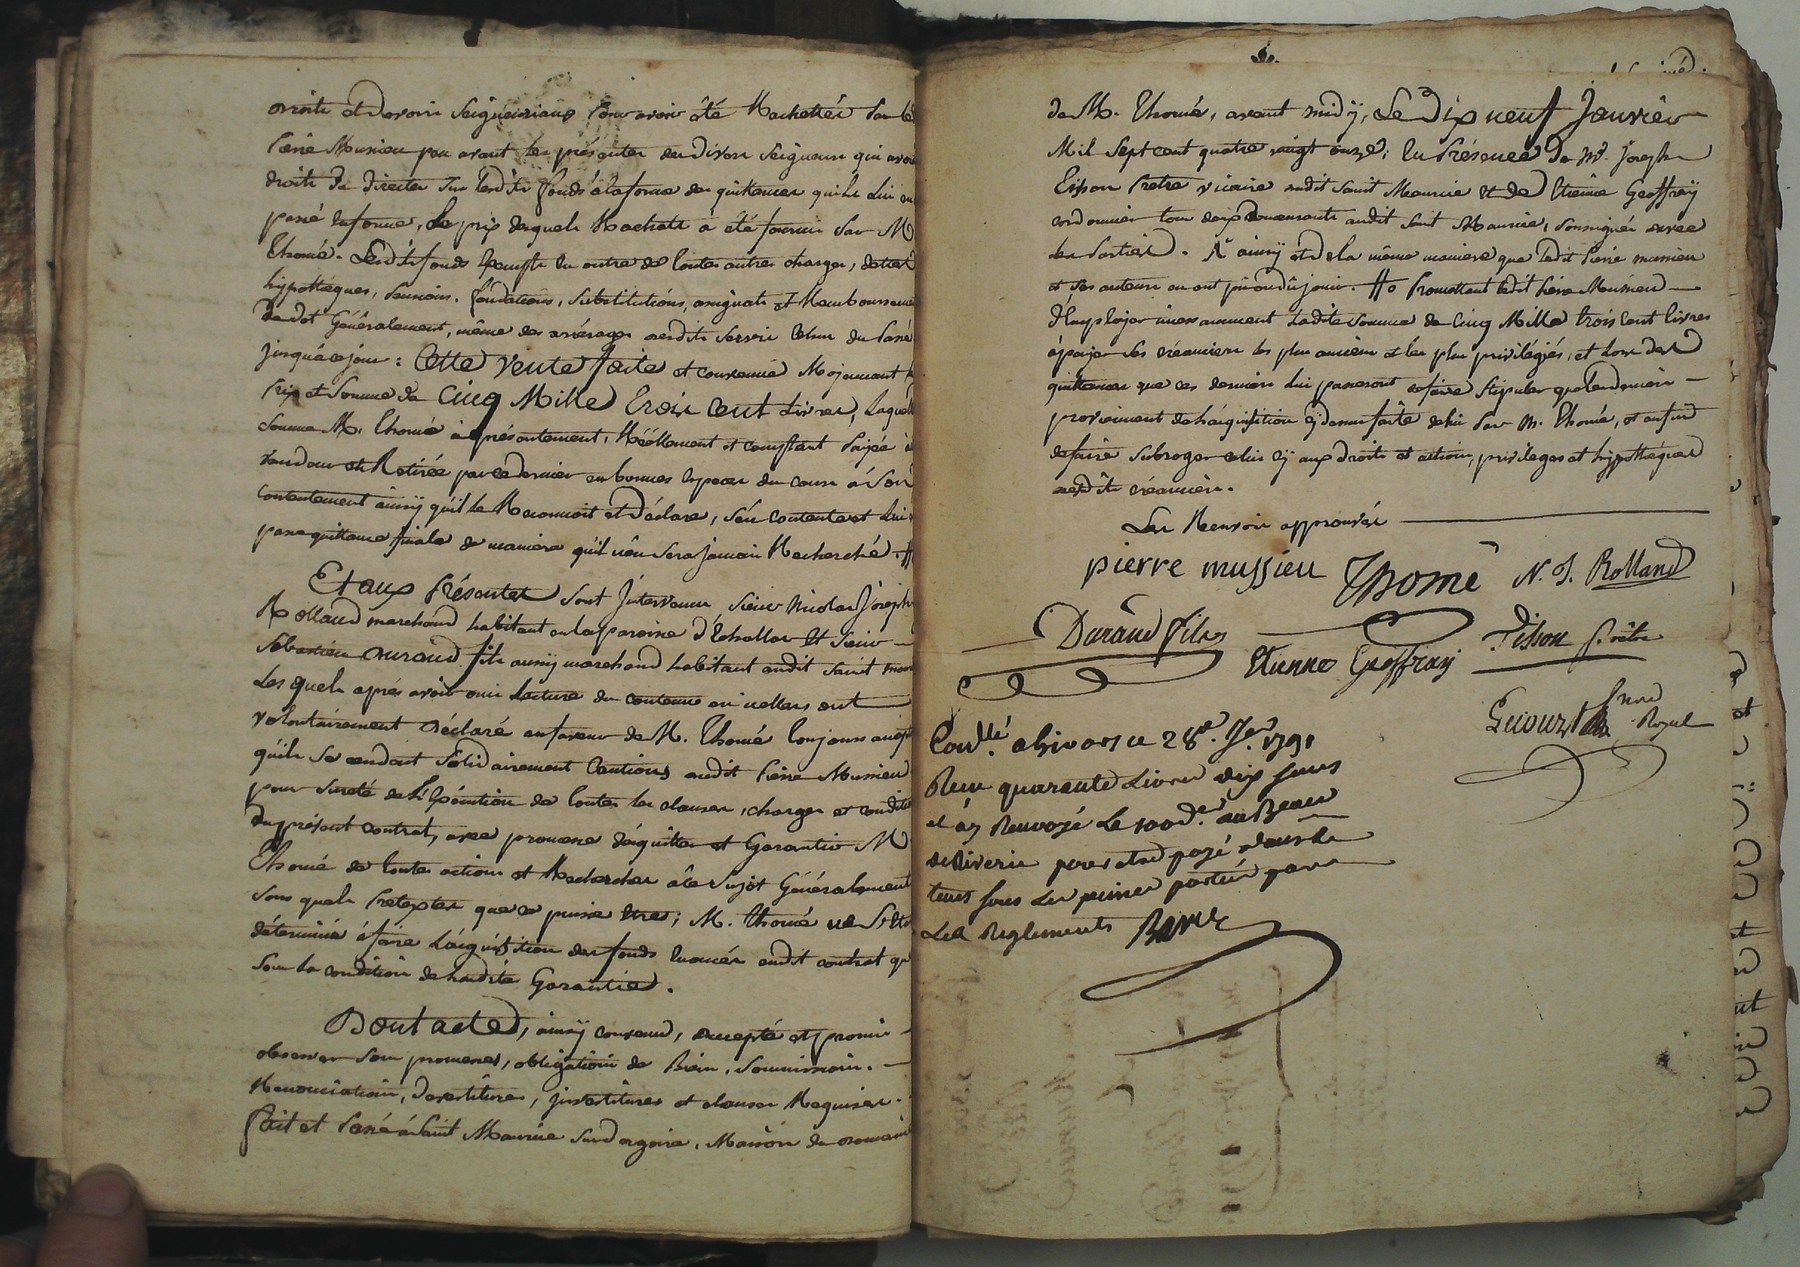 droits et devoirs Seigneuriaux pour avoir été Rachettés par le
Pierre Mussieu par avant les présentes du divers Seigneurs qui avoi
droits de directes sur lesdits fonds à la forme des quittances qu'ils lui en
passé en forme, Le prix desquels Rachats à été fournis par M
Thomé. Lesdits fonds Exempts en outre de toutes autres charges, dettes
hypothéques, pensions, fondations, substitutions, assignats et Rembourseme
de dot Généralement, même des arérages desdits servis Echus du passé
jusqu'à ce jour : Cette vente faite et convenue Moyennant le
prix et somme de Cinq Mille Trois Cent Livres, Laquelle
somme M. Thomé à présentement, Réèllement et comptant payée à
vendeur et Retirée par ce dernier en bonnes especes du cours à Son
contentement ainsy qu'il le Reconnoit et Déclare, s'en contente et lui
passe quittance finale de maniere qu'il n'en sera jamais Recherché. #
Et aux présentes sont Intervenus sieur Nicolas Joseph
Rolland marchand habitant en la paroisse d'Echallas Et sieur
Sébastien Durand fils aussy marchand habitant audit saint mau
Lesquels après avoir oui Lecture du contenu en icelles ont
volontairement Déclaré en faveur de M. Thomé toujours acc
qu'ils se rendent solidairement Cautions audit Pierre Mussieu
pour sureté de L'Exécution de toutes les clauses, charges et condit
du présent contrat, avec promesse d'acquitter et Garantir M
Thomé de toutes actions et Recherches à ce sujet Généralement
sous quels Pretextes que ce puisse Etres; M. Thomé ne s'éta
déterminé à faire L'acquisition des fonds Enoncés audit contrat qu
sous la condition de ladite Garantie.
Dont acte, ainsy convenu, accepté et promis
observer sous promesses, obligations de Biens, soumissions.
Renonciations, Devestitures, investitures et clauses Requises.
fait et passé à Saint Maurice sur dargoire, Maison de
de M. Thomé, avant midy, Le Dix neuf Janvier
Mil Sept cent quatre vingt onze; En Présence de mr. Joseph
Pretre vicaire audit saint Maurice et de Etienne Geoffray
cordonnier tous deux demeurants audit saint Maurice, soussignés avec
les parties. et ainsy et de la même maniere que ledit Pierre mussieu
et ses auteurs en ont pû ou dû jouir. # Promettant ledit Pierre Mussieu
d'Employer incessamment ladite somme de Cinq Mille trois cent livres
à payer ses créanciers les plus anciens et les plus privilégiés, et lors des
quittances que ces derniers lui passeront de faire stipuler que les deniers
proviennent de l'acquisition cy dessus faite de lui par M. Thomé, et aux fins
de faire subroger celui cy aux droits et actions, privileges et hypothéques
desdits créanciers.
Les Renvois approuvés
pierre mussieu Thomé N. J. Rolland
Durand fils Etienne Geoffray prêtre
Royal
a ce 28e. Jer. 1791
Reçu quarante Livres dix sous
et Renvoyé Le 100de. au Beau
de Riverie pour etre payé dans
sous les peines portées par
Les Reglements